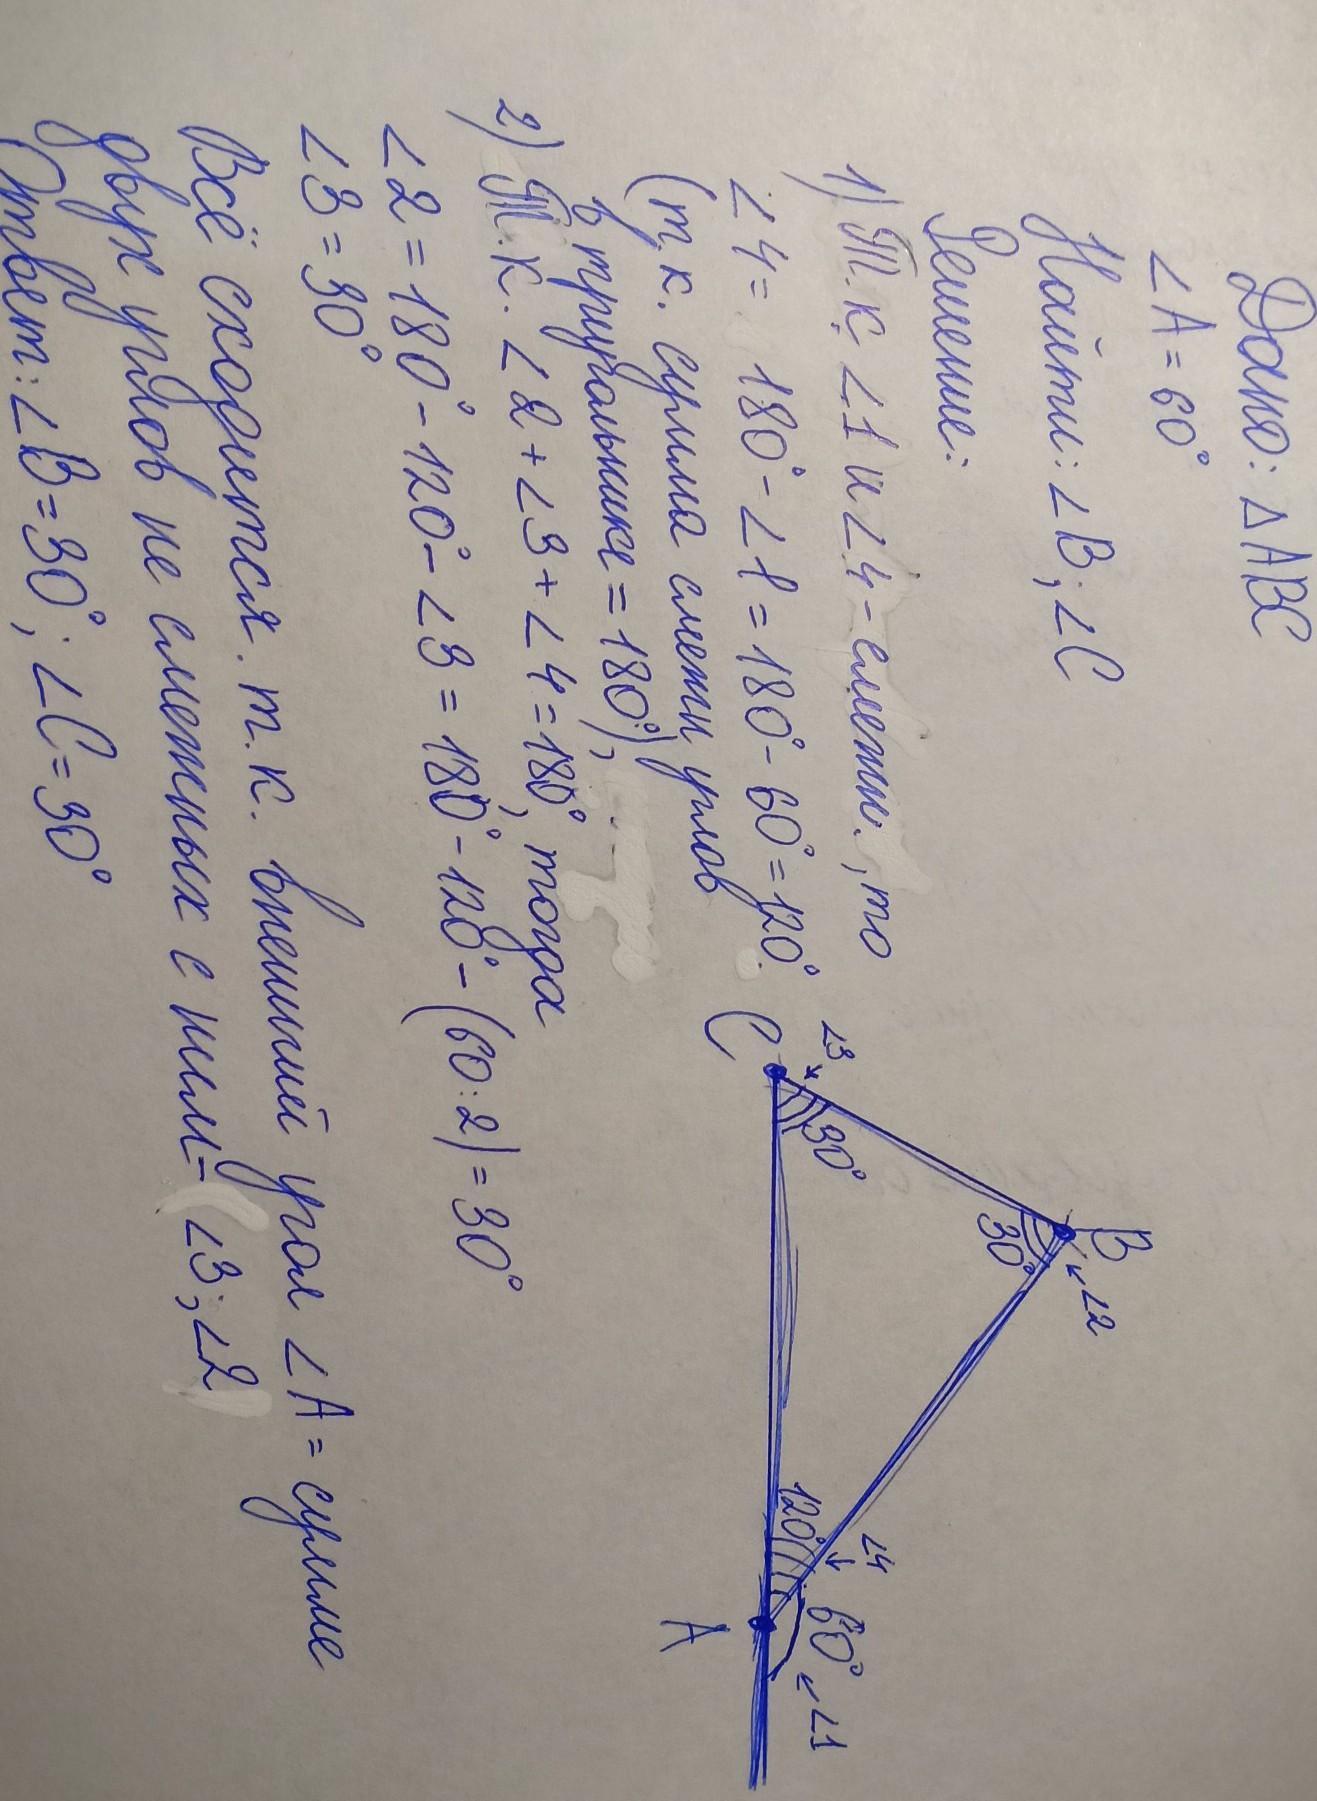 Дано: △ABC
∠A=60°
Найти: ∠B; ∠C
Решение:
1) Т.к ∠1 и ∠4-смежн., то
∠4= 180°-∠1=180°-60°=120°
(т.к. сумма смежн углов
в треугольнике=180°),
2) Т.к. ∠2+∠3+∠4=180°, тогда
∠2=180°-120°-∠3=180°-120°-(60:2)=30°
∠3=30°
Всё сходится. т.к. внешний угол ∠A= сумме
двух углов не смежных с ним-(∠3;∠2)
Ответ: ∠B=30°; ∠C=30°
B
∠2
30°
∠3
30°
C
∠4
120°
60°
∠1
A